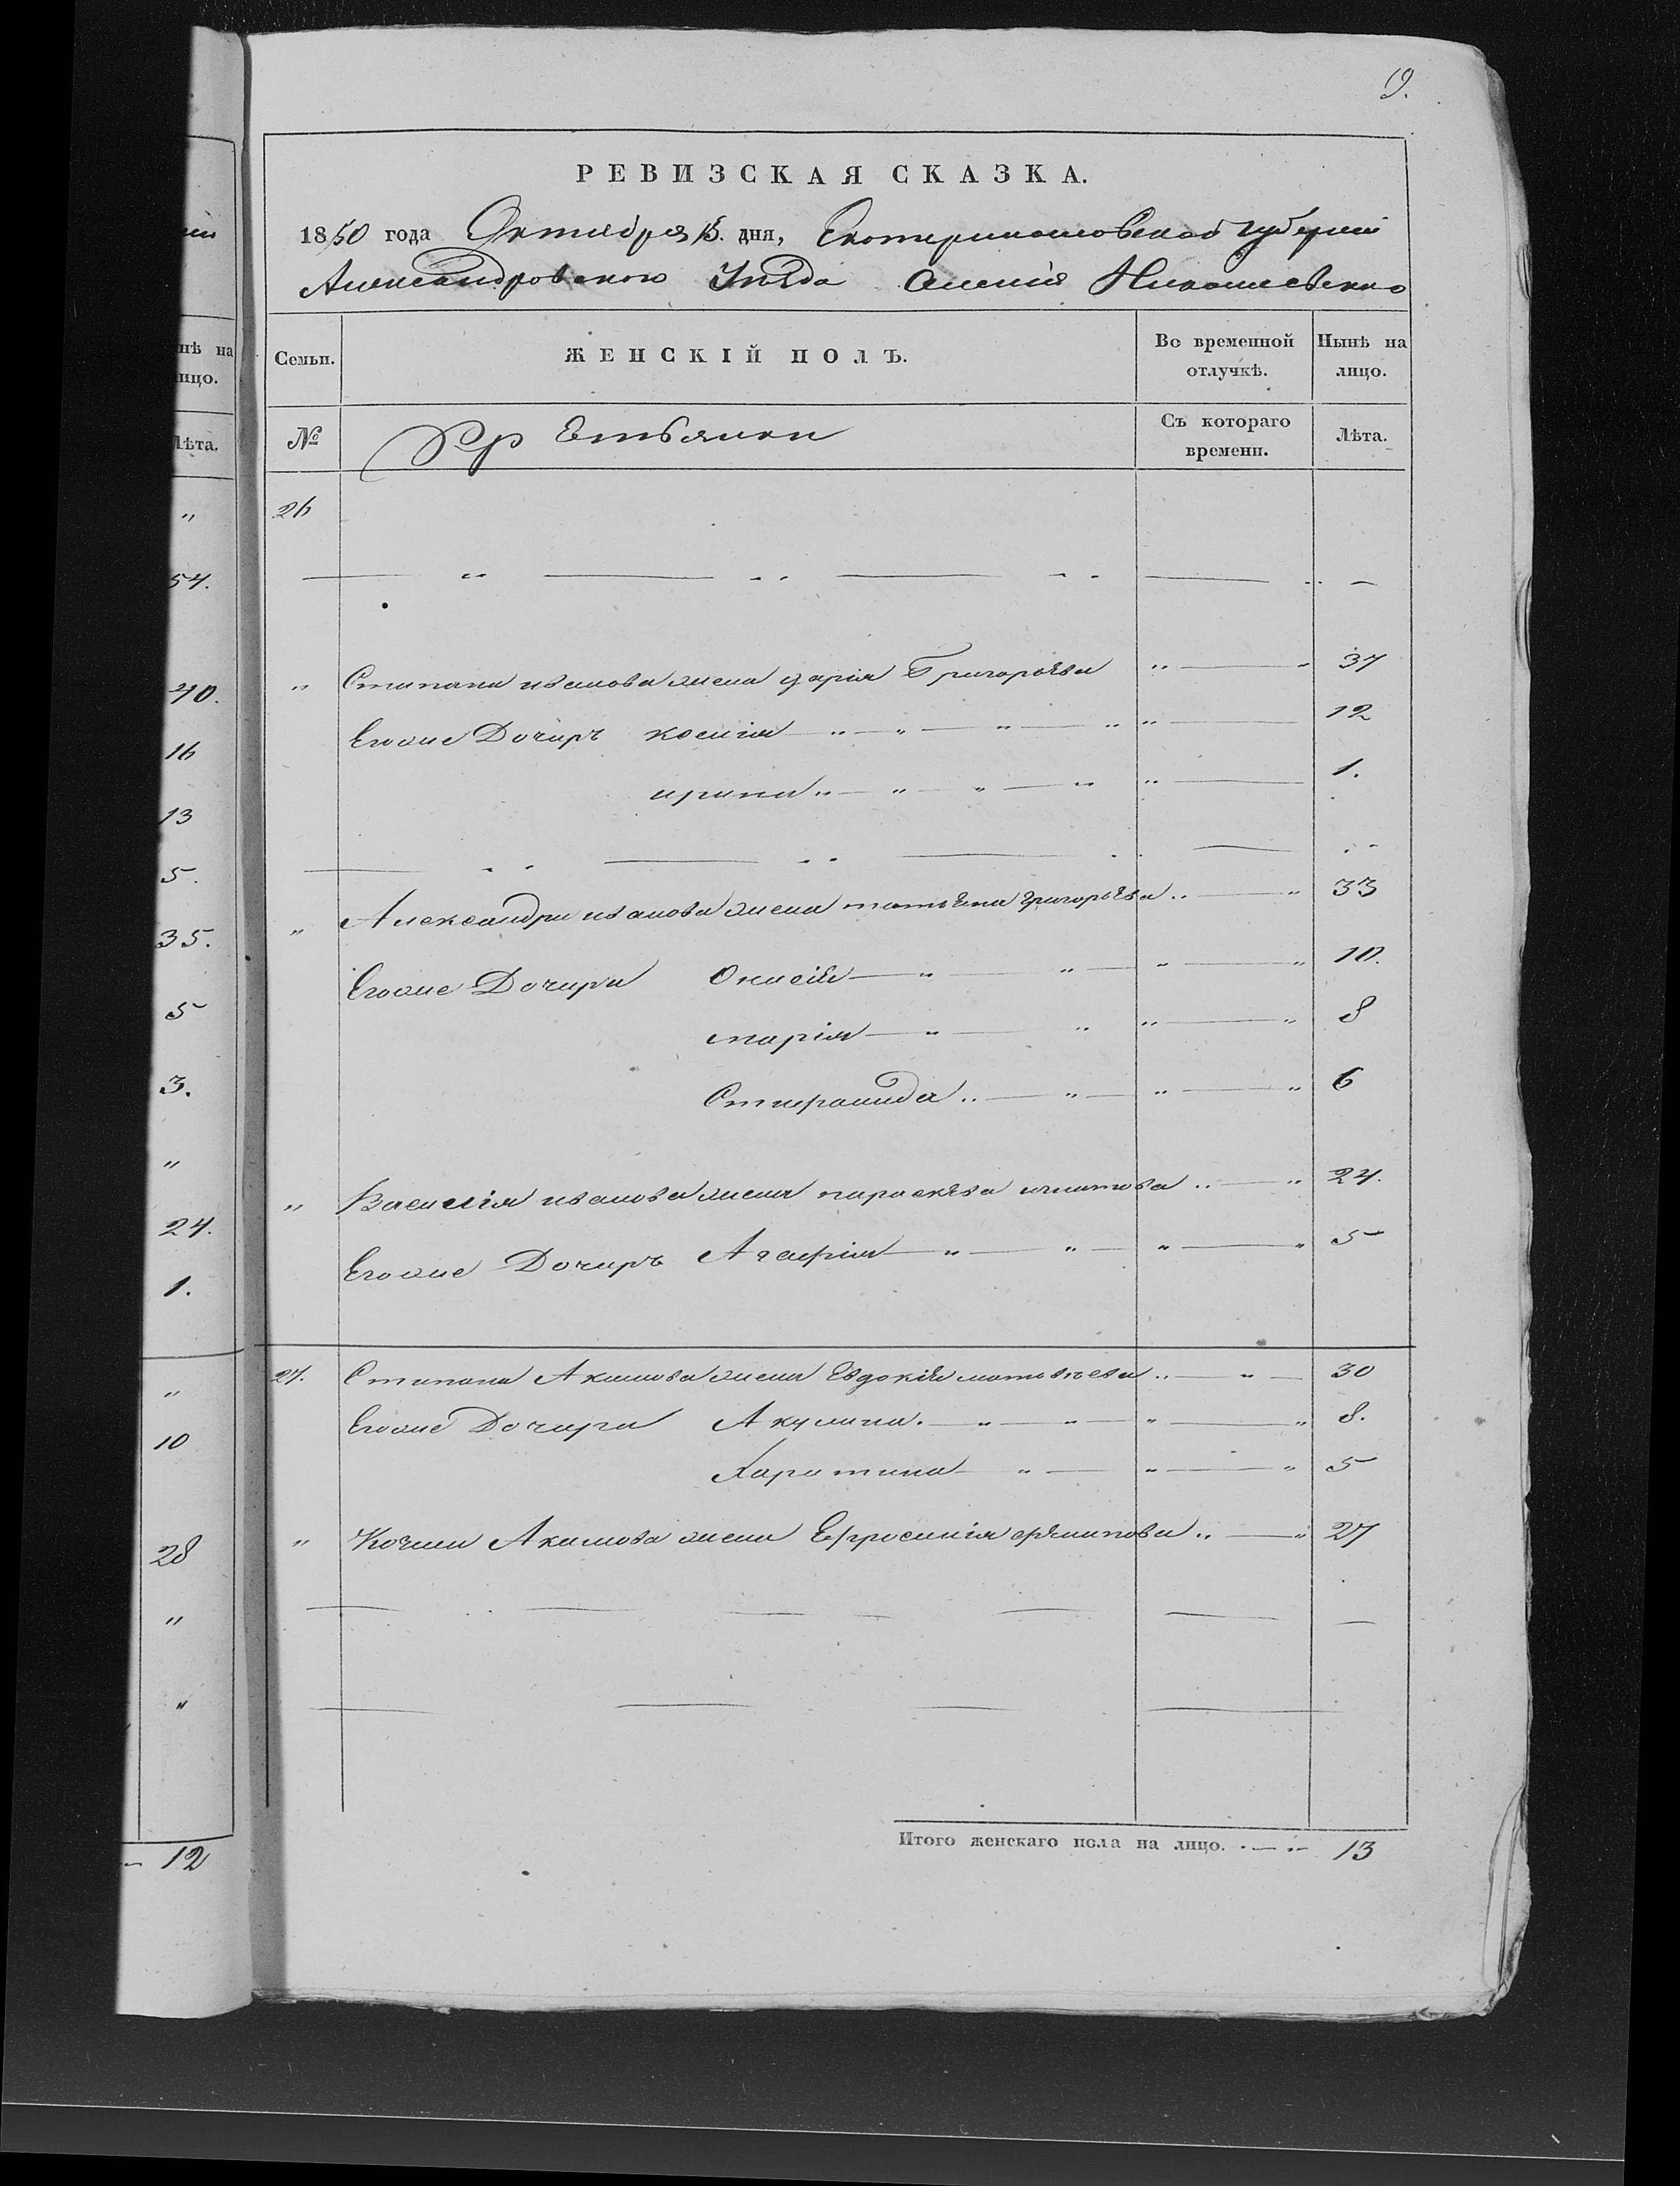 9.
РЕВИЗСКАЯ СКАЗКА.
1850 года Октября 15. дня, Екатеринославской губерній
Александровского Уезда Николаевско
Семьи. ЖЕНСКІЙ ПОЛЪ. Во временной отлучкѣ. Нынѣ на лицо.
№ Съ котораго времени. Лѣта.
26
" Степана иванова жена дарія Григорьева " — " 37
Егоже Дочирь ксенія " — " — " — " " — 12
ирина " — " — " — " " — 1.
" Александра иванова жена татьяна григорьева " — " 33
Егоже Дочири — " — " — " — " 10.
марія — " — " " — " 8
" — " — " — " 6
" Василія иванова жена параскева " — " 24.
Егоже Дочирь Агафія — " — " — " — " 5
27. Степана Акимова жена Евдокія матвѣева " — " — 30
Егоже Дочири Акулина. — " — " — " — " 8.
Харитина — " — " — " 5
" Акимова жена Ефросинія " — " 27
Итого женскаго пола на лицо. " — " 13
нѣ на
ицо.
Лѣта.
"
54.
40.
16
13
5.
35.
5
3.
"
24.
1.
"
10
28
"
"
— 12